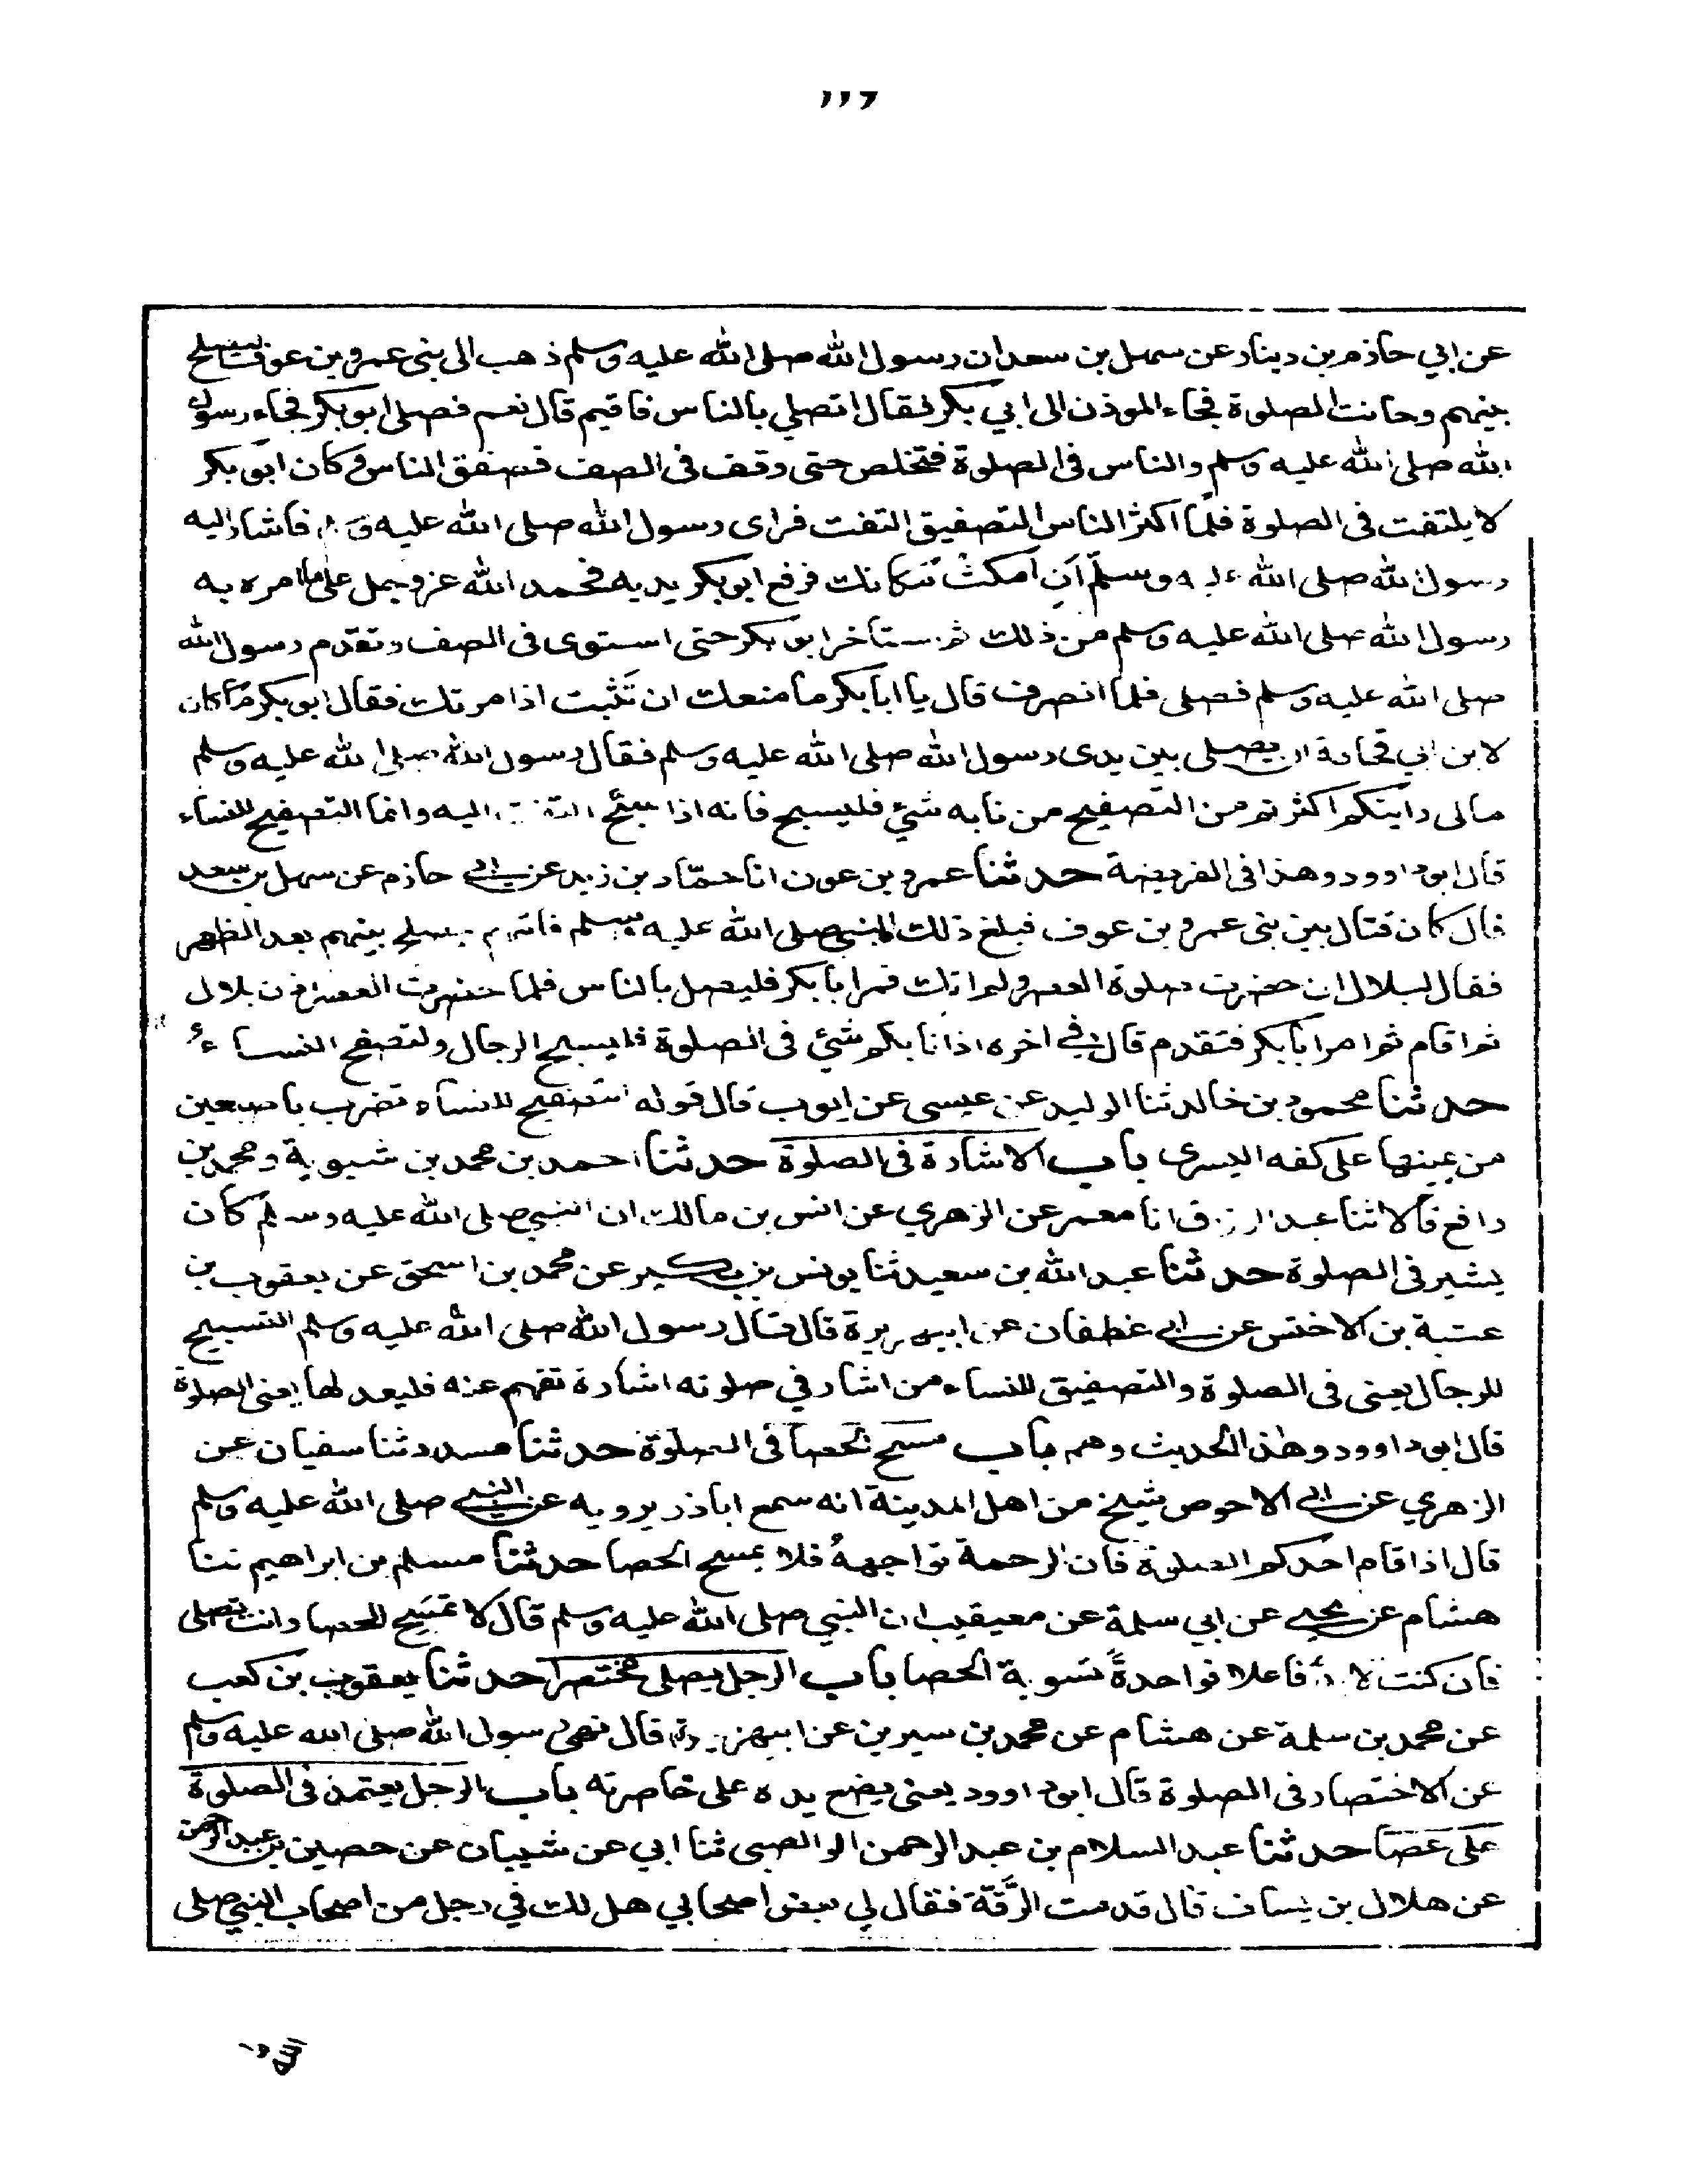 ١١٦
عن ابي حازم بن دينار عن سهل بن سعد ان رسول الله صلى الله عليه وسلم ذهب الى بنى عمرو بن عوف ليصلح
بينهم وحانت الصلوة فجاء الموذن الى ابي بكر فقال اتصلي بالناس فاقيم قال نعم فصلى ابو بكر فجاء رسول
الله صلى الله عليه وسلم والناس فى الصلوة فتخلص حتى وقف فى الصف فصفق الناس وكان ابو بكر
لا يلتفت فى الصلوة فلما اكثر الناس التصفيق التفت فراى رسول الله صلى الله عليه فاشار اليه
رسول الله صلى الله عليه وسلم ان امكث مكانك فرفع ابو بكر يديه فحمد الله عز وجل على ما امره به
رسول الله صلى الله عليه وسلم من ذلك ثم ستأخر ابو بكر حتى استوى فى الصف وتقدم رسول الله
صلى الله عليه وسلم فصلى فلما انصرف قال يا ابا بكر ما منعك ان تثبت اذ امرتك فقال ابو بكر ما كان
لابن ابي قحافة ان يصلى بين يدى رسول الله صلى الله عليه وسلم فقال رسول الله صلى الله عليه وسلم
مالى رايتكم اكثرتم من التصفيح من نابه شئ فليسبح فانه اذا سبح التفت اليه وانما التصفيح للنساء
قال ابو داوود وهذا فى الفريضة حدثنا عمرو بن عون انا حماد بن زيد عن ابى حازم عن سهل بن سعد
قال كان قتال بين بنى عمرو بن عوف فبلغ ذلك النبي صلى الله عليه وسلم فاتاهم ليصلح بينهم بعد الظهر
فقال لبلال ان حضرت صلوة العصر ولم اتك فمر ابا بكر فليصل بالناس فلما حضرت العصر اذن بلال
ثم اقام ثم امر ابا بكر فتقدم قال فى اخره اذا نابكم شئ فى الصلوة فليسبح الرجال ولتصفح النساء
حدثنا محمود بن خالد ثنا الوليد عن عيسى عن ايوب قال قوله التصفيح للنساء تضرب باصبعين
من يمينها على كفه اليسرى باب الاشارة فى الصلوة حدثنا احمد بن محمد بن شبوية ومحمد بن
رافع قالا ثنا عبد الرزاق انا معمر عن الزهري عن انس بن مالك ان النبي صلى الله عليه وسلم كان
يشير فى الصلوة حدثنا عبد الله بن سعيد ثنا يونس بن بكير عن محمد بن اسحق عن يعقوب بن
عتبة بن الاخنس عن ابى غطفان عن ابيهريرة قال قال رسول الله صلى الله عليه وسلم التسبيح
للرجال يعنى فى الصلوة والتصفيق للنساء من اشار في صلوته اشارة تفهم عنه فليعد لها يعنى الصلوة
قال ابو داوود وهذا الحديث وهم باب مسح الحصا فى الصلوة حدثنا مسدد ثنا سفيان عن
الزهري عن ابى الاحوص شيخ من اهل المدينة انه سمع اباذر يرويه عن النبي صلى الله عليه وسلم
قال اذا قام احدكم الى الصلوة فان الرحمة تواجهه فلا يمسح الحصا حدثنا مسلم بن ابراهيم ثنا
هشام عن يحيى عن ابي سلمة عن معيقيب ان النبي صلى الله عليه وسلم قال لا تمسح الحصا وانت تصلى
فان كنت لا بد فاعلا فواحدة تسوية الحصا باب الرجل يصلى مختصرا حدثنا يعقوب بن كعب
عن محمد بن سلمة عن هشام عن محمد بن سيرين عن ابيهريرة قال نهى رسول الله صلى الله عليه وسلم
عن الاختصار فى الصلوة قال ابو داوود يعنى يضع يده على خاصرته باب الرجل يعتمد فى الصلوة
على عصا حدثنا عبد السلام بن عبد الرحمن الوابصى ثنا ابي عن شيبان عن حصين بن عبد الرحمن
عن هلال بن يساف قال قدمت الرقة فقال لي بعض اصحابي هل لك في رجل من اصحاب النبي صلى